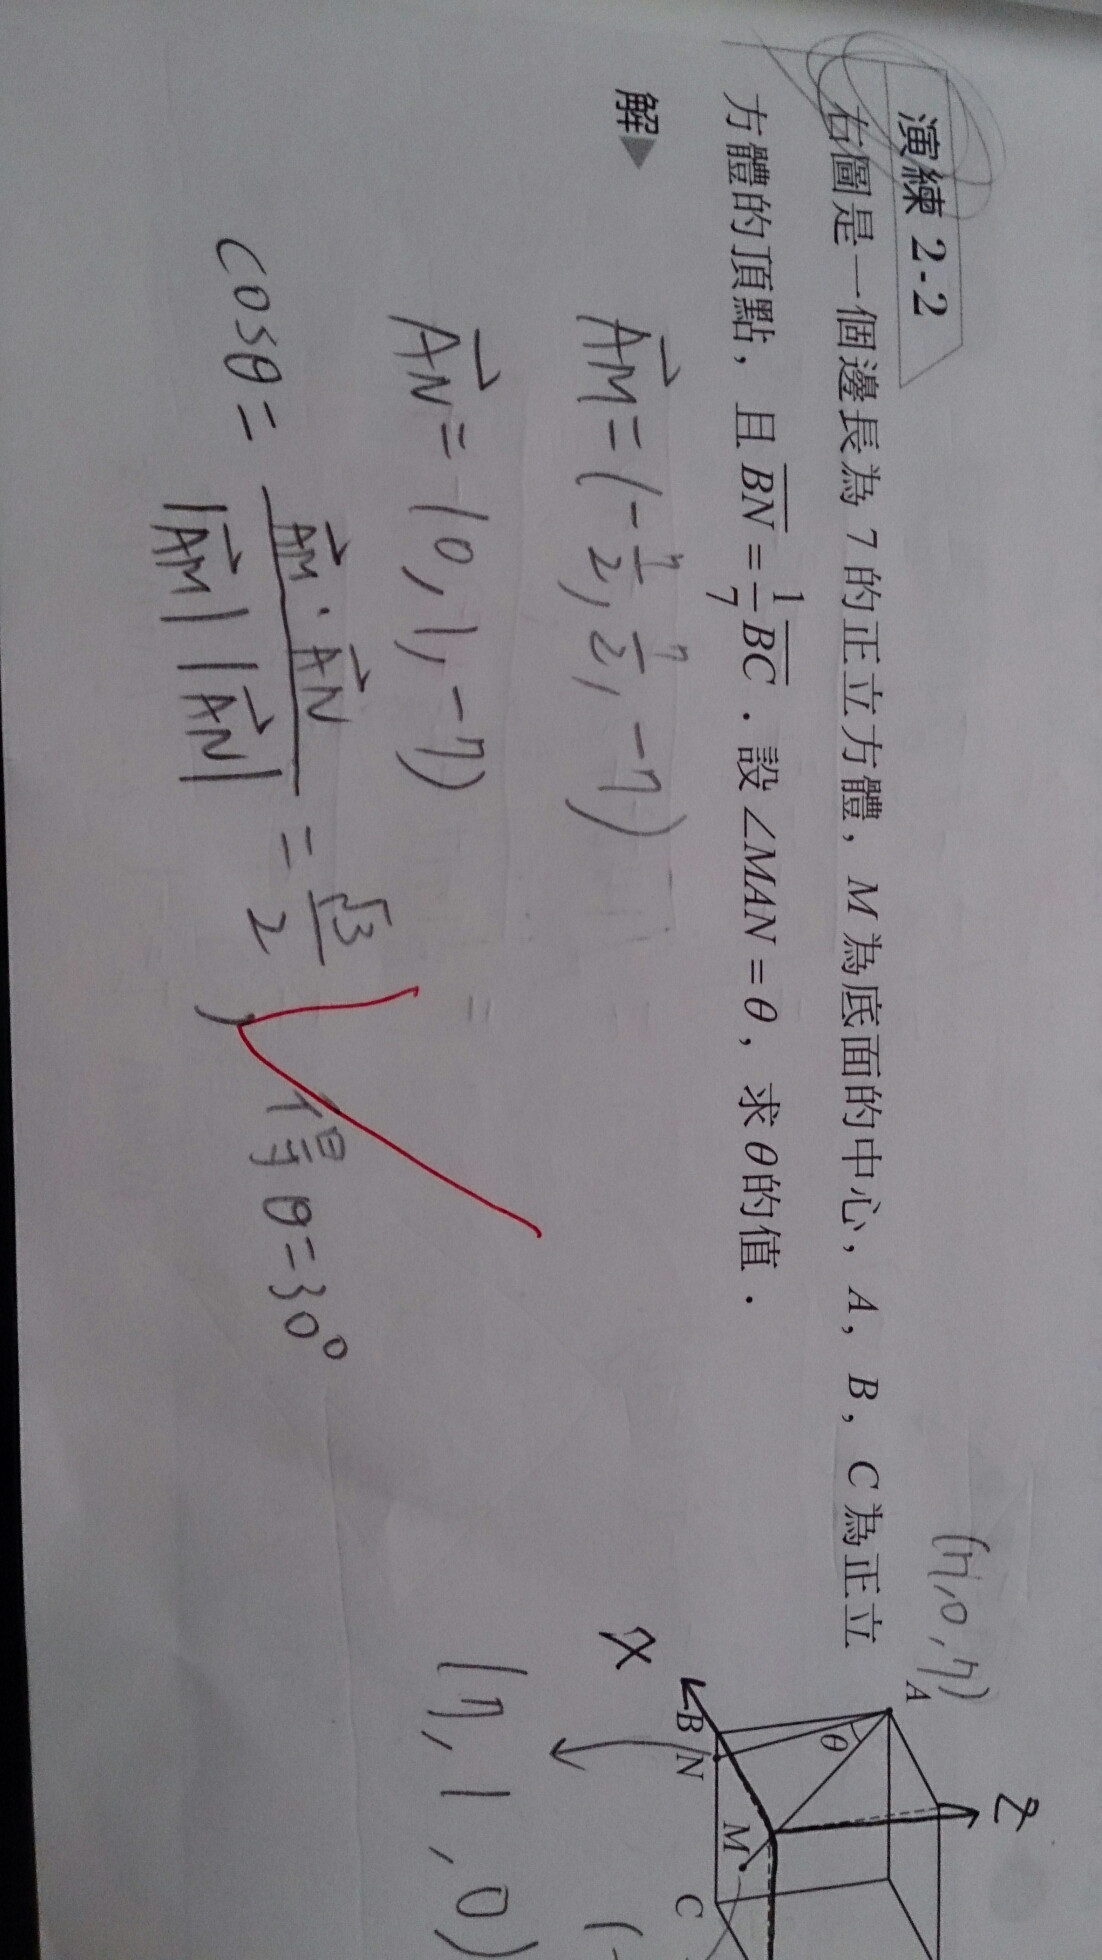 演練 2-2
右圖是一個邊長為 7 的正立方體，M 為底面的中心，A，B，C 為正立
方體的頂點，且 BN = 1/7 BC．設 ∠MAN = θ，求 θ 的值．
解▶
AM = (-7/2, 7/2, -7)
AN = (0, 1, -7)
cosθ = AM · AN / |AM| |AN| = √3/2, 得 θ = 30°
(7, 0, 7)
A
Z
θ
X
B
N
M
C
(7, 1, 0)